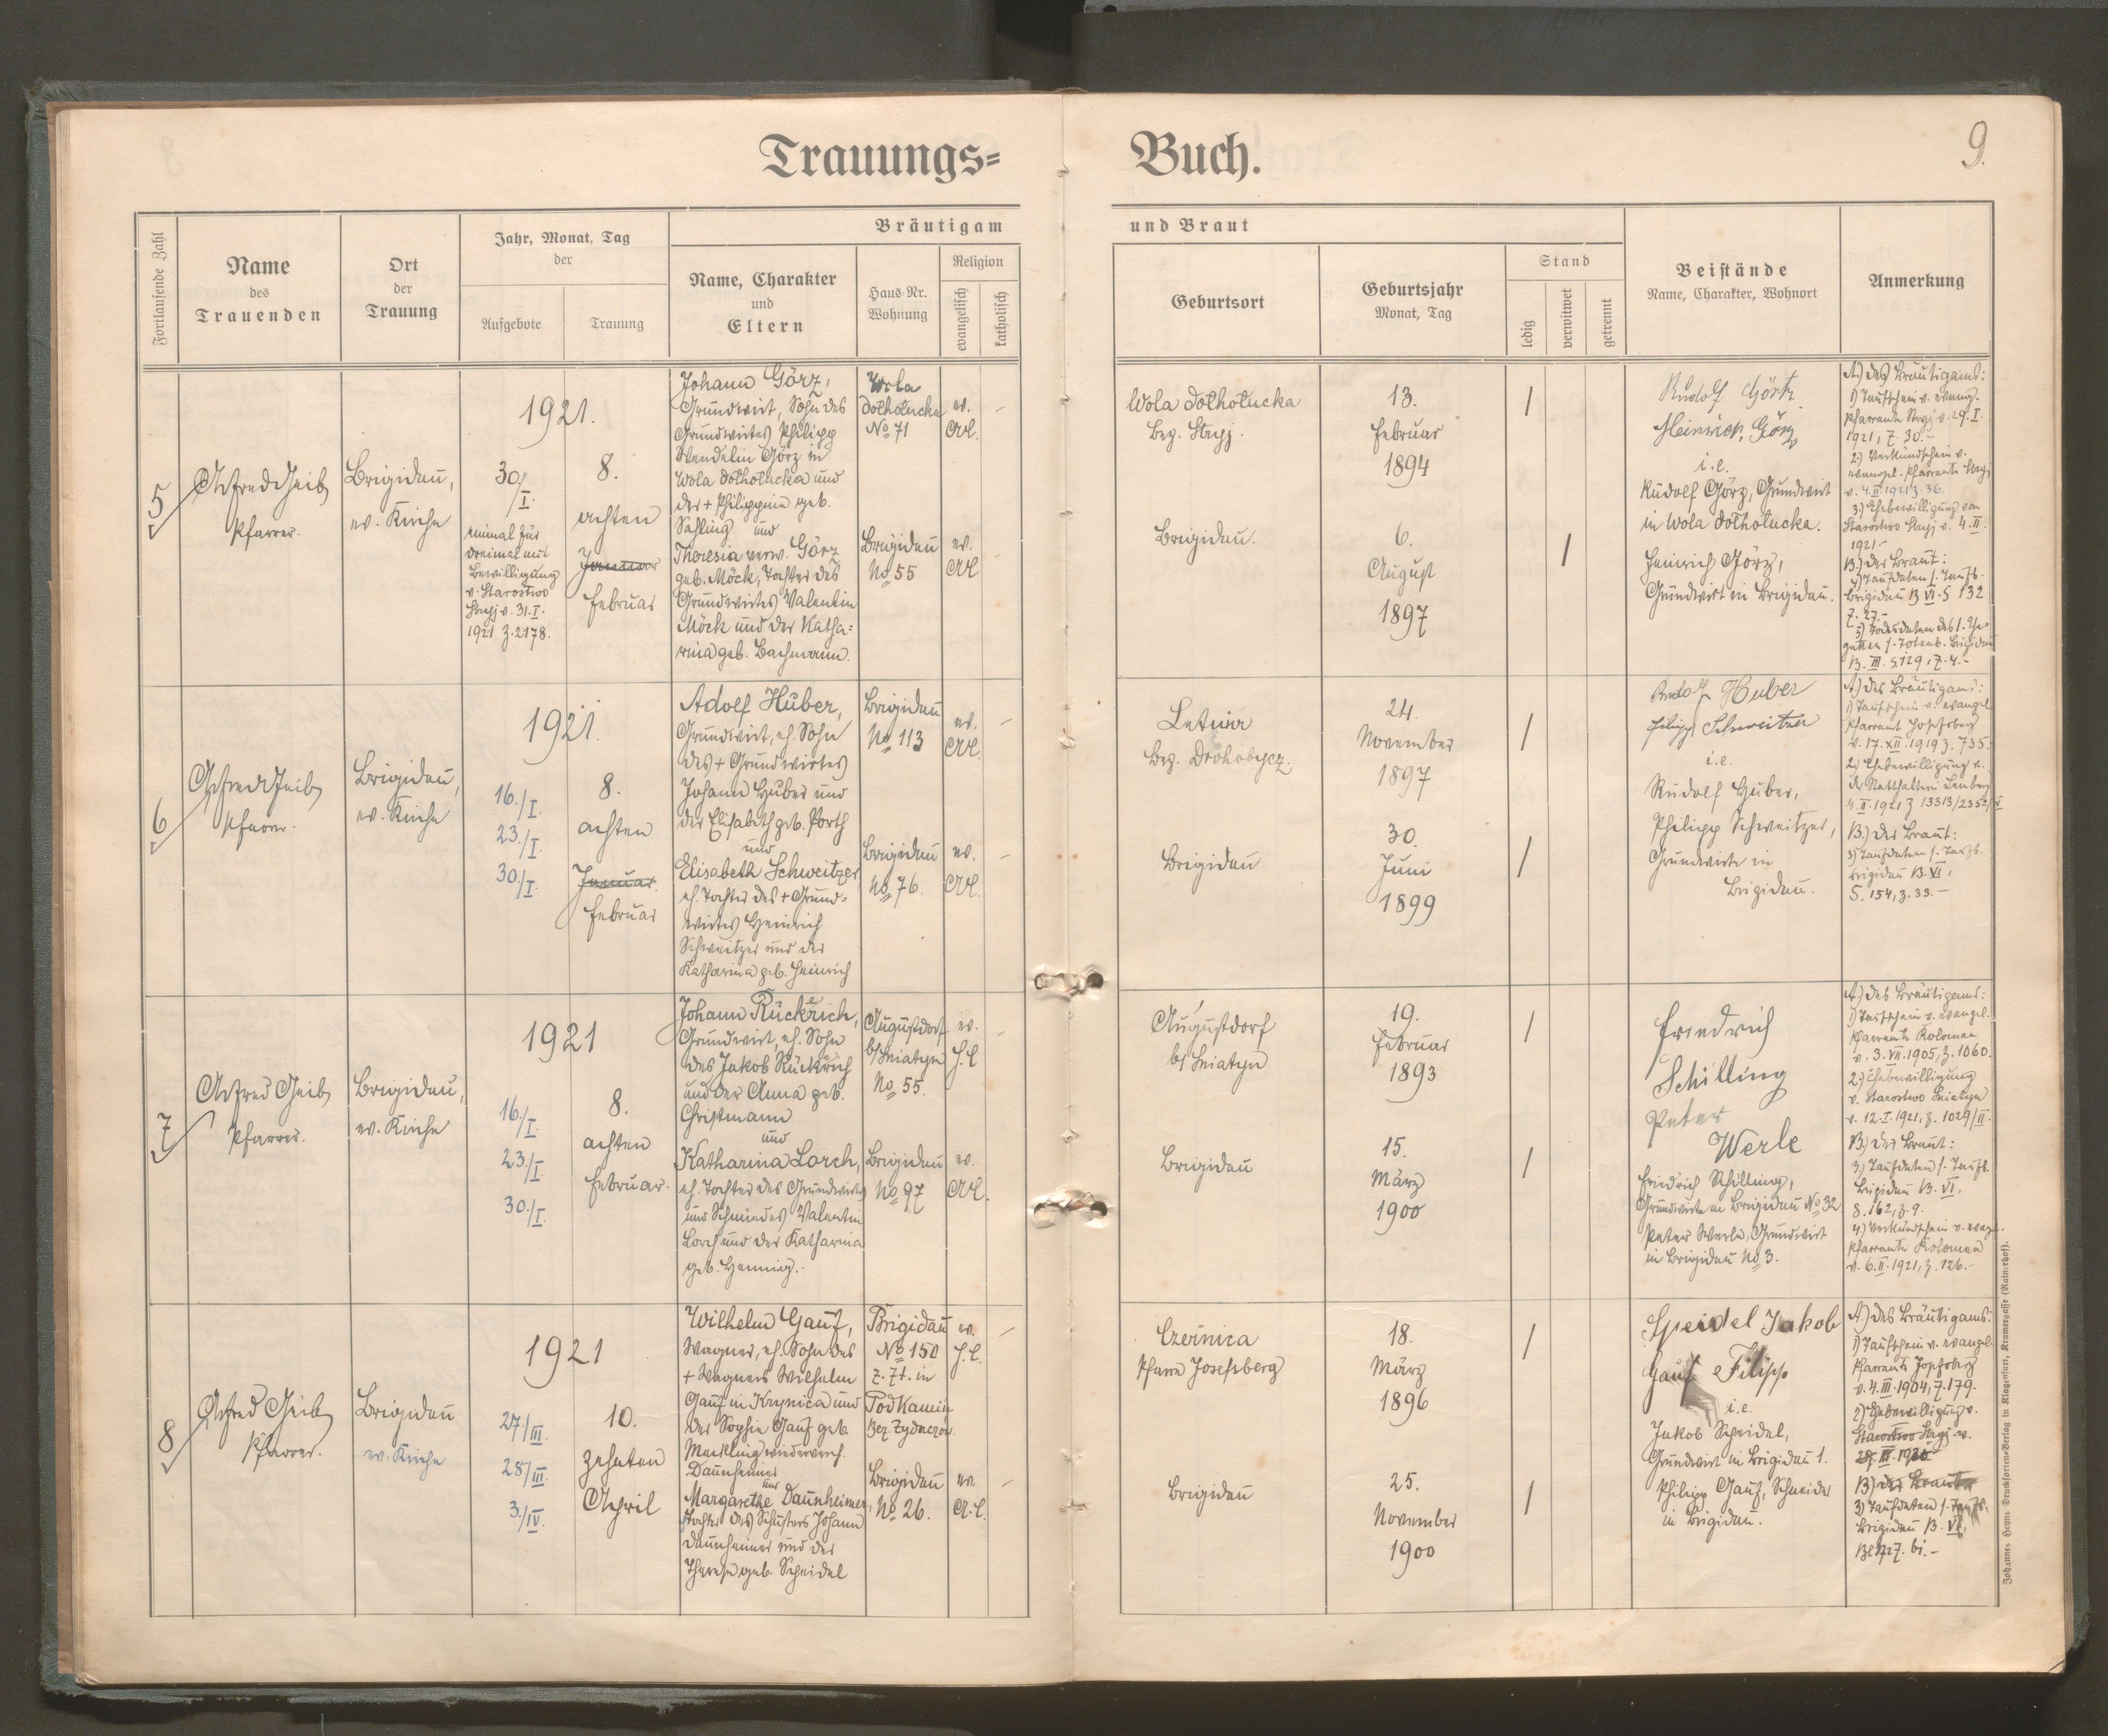 Trauungs=
Buch.
9.
Fortlaufende Zahl
Name
des
Trauenden
Ort
der
Trauung
Jahr, Monat, Tag
der
Aufgebote
Trauung
Bräutigam
Name, Charakter
und
Eltern
Haus-Nr.
Wohnung
Religion
evangelisch
katholisch
und Braut
Geburtsort
Geburtsjahr
Monat, Tag
Stand
ledig
verwitwet
getrennt
Beistände
Name, Charakter, Wohnort
Anmerkung
5
Alfred Geib
Pfarrer.
Brigidau,
ev. Kirche
1921.
30/I.
einmal für
dreimal mit
Bewilligung
v. Starostwo
Stryj v. 31.I.
1921 Z. 2178.
8.
achten
Januar
Februar
Johann Görz,
Grundwirt, Sohn des
Grundwirtes Philipp
Wendelin Görz in
Wola Dołhołucka und
der + Philippine geb.
Sahling und
Theresia verw. Görz
geb. Möck, Tochter des
Grundwirtes Valentin
Möck und der Katha=
rina geb. Bachmann.
Wola
Dołhołucka
No 71
ev.
A.C.
Brigidau
No 55
ev.
A.C.
Wola Dołhołucka
Bez. Stryj.
13.
Februar
1894
Brigidau.
6.
August
1897
Rudolf Görtz
Heinrich Görz
i.e.
Rudolf Görz, Grundwirt
in Wola Dołhołucka.
Heinrich Görz,
Grundwirt in Brigidau.
A.) des Bräutigams:
1) Taufschein v. evang.
Pfarramte Stryj v. 29.I.
1921, Z. 30.-
2.) Verkündschein v.
evangel. Pfarramte Stryj
v. 4.II.1921 Z. 36.
3.) Ehebewilligung vom
Starostwo Stryj v. 4.II.
1921-
B.) der Braut:
4) Taufdaten s. Taufb.
Brigidau B VI. S 132
Z. 27.-
5) Todesdaten des I. Ehe-
gatten s. Totenb. Brigidau
B. III. S. 129, Z. 4.-
6
Alfred Geib
Pfarrer.
Brigidau,
ev. Kirche
1921.
16./I.
23./I.
30/I.
8.
achten
Januar.
Februar
Adolf Huber,
Grundwirt, eh. Sohn
des + Grundwirtes
Johann Huber und
der Elisabeth geb. Porth
und
Elisabeth Schweitzer
eh. Tochter des + Grund-
wirtes Heinrich
Schweitzer und der
Katharina geb. Heinrich
Brigidau
No 113
ev.
A.C.
Brigidau
No 76.
ev.
A.C.
Letnia
Bez. Drohobycz.
24.
November
1897
Brigidau
30.
Juni
1899
Rudolf Huber
Filipp Schweitzer
i.e.
Rudolf Huber,
Philipp Schweitzer,
Grundwirte in
Brigidau.
A.) des Bräutigams:
1) Taufschein v. evangel.
Pfarramt Josefsberg
v. 17.XII.1919 Z. 735.
2.) Ehebewilligung v.
der Statthalterei Lemberg
4.II.1921 Z 13313/2352/V
B.) der Braut:
3) Taufdaten s. Taufb.
Brigidau B. VI,
S. 154, Z. 33.-
7
Alfred Geib
Pfarrer.
Brigidau,
ev. Kirche
1921
16./I.
23./I.
30./I.
8.
achten
Februar.
Johann Rückrich,
Grundwirt, eh. Sohn
des Jakob Rückrich
und der Anna geb.
Christmann
und
Katharina Lorch,
eh. Tochter des Grundwirtes
und Schmiedes Valentin
Lorch und der Katharina
geb. Hennig.-
Augustdorf
b/ Sniatyn
No 55.
ev.
H.C
Brigidau
No 97
ev.
A.C.
Augustdorf
b/ Sniatyn
19.
Februar
1893
Brigidau
15.
März
1900
Friedrich
Schilling
Peter
Werle
Friedrich Schilling,
Grundwirte in Brigidau No 32
Peter Werle, Grundwirt
in Brigidau No 3.
A.) des Bräutigams:
1) Taufschein v. evangel.
Pfarramte Kolomea
v. 3.VII.1905, Z. 1060.
2.) Ehebewilligung
v. Starostwo Sniatyn
v. 12.I.1921, Z. 1029/II.
B.) der Braut:
3) Taufdaten s. Taufb.
Brigidau B. VI,
S. 162, Z. 9.
4) Verkündschein v. evang.
Pfarramte Kolomea
v. 6.II.1921, Z. 126.-
8
Alfred Geib
Pfarrer.
Brigidau
ev. Kirche
1921
27/III.
28/III.
3./IV.
10.
zehnten
April
Wilhelm Gauf,
Wagner, eh. Sohn des
+ Wagners Wilhelm
Gauf in Krynica und
der Sophie Gauf geb.
Meckling wiederverh.
Daunheimer
und
Margarethe Daunheimer,
Tochter des Schusters Johann
Daunheimer und der
Therese geb. Scheidel
Brigidau
No 150
z. Zt. in
Podkamin
Bez. Zydaczów
ev.
H.C.
Brigidau
No 26.
ev.
A.C.
Czernica
Pfarre Josefsberg
18.
März
1896
Brigidau
25.
November
1900
Speidel Jakob
Gauf Filipp
i.e.
Jakob Speidel,
Grundwirt in Brigidau 1.
Philipp Gauf, Schneider
in Brigidau.
A.) des Bräutigams:
1) Taufschein v. evangel.
Pfarramte Josefsberg
v. 4.III.1904, Z. 179.
2) Ehebewilligung v.
Starostwo Stryj v.
B.) der Braut
3) Taufdaten s. Taufb.
Brigidau B. VI,
Johannes Heyns Drucksorten-Verlag in Klagenfurt, Kramergasse (Rainerhof).